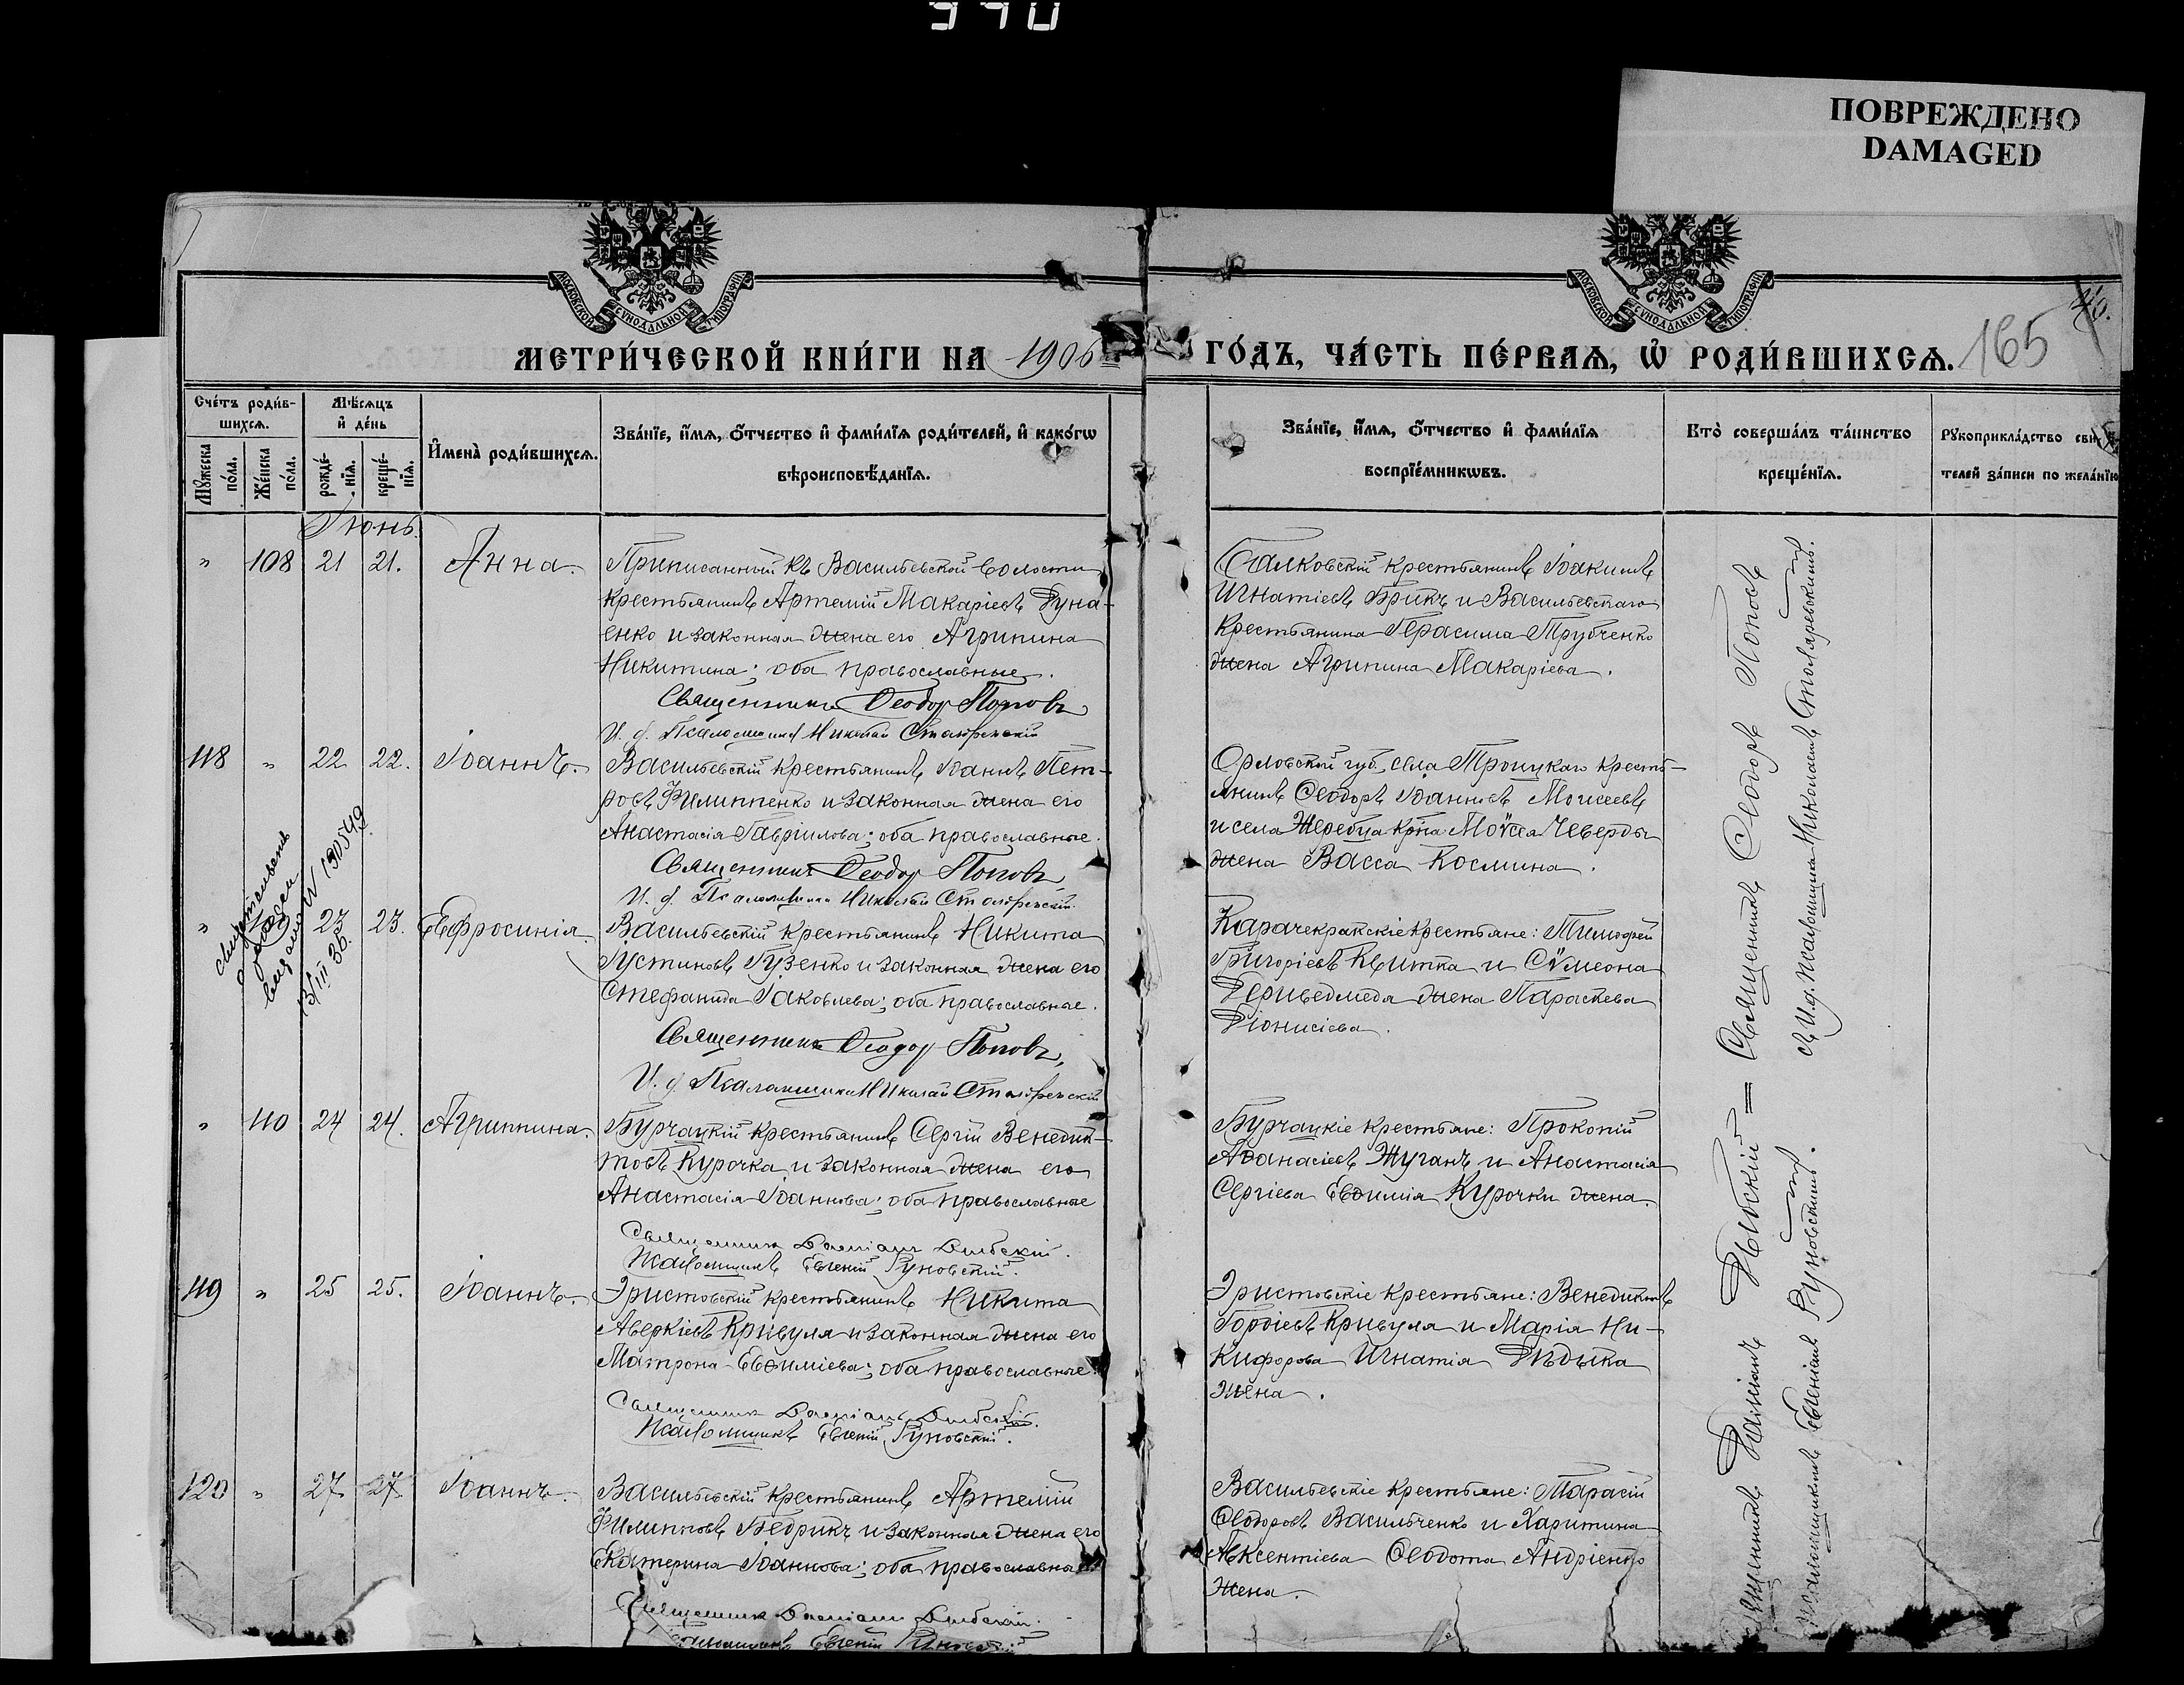 ПОВРЕЖДЕНО
DAMAGED
МОСКОВСКОЙ СѴНОДАЛЬНОЙ ТИПОГРАФІИ
МОСКОВСКОЙ СѴНОДАЛЬНОЙ ТИПОГРАФІИ
МЕТРИ́ЧЕСКОЙ КНИ́ГИ НА 1906
ГО́ДЪ, ЧА́СТЬ ПЕ́РВАѦ, Ѡ҆ РОДИ́ВШИХСѦ.
165
Сче́тъ роди́в-
шихсѧ.
Мꙋжеска по́ла.
Же́нска по́ла.
Мѣ́сѧцъ
и҆ де́нь
рожде́-
нїѧ.
креще́-
нїѧ.
И҆мена̀ роди́вшихсѧ.
Зва́нїе, и҆́мѧ, ѻ҆́тчество и҆ фами́лїѧ роди́телей, и҆ како́гѡ
вѣроисповѣ́данїѧ.
Зва́нїе, и҆́мѧ, ѻ҆́тчество и҆ фами́лїѧ
воспрїе́мникѡвъ.
Кто̀ соверша́лъ та́инство
креще́нїѧ.
Рꙋкоприкла́дство сви-
телей за́писи по жела́нїю
Іюнь.
" 108 21 21. Анна.
Приписанный къ Васильевской волости
крестьянинъ Артемій Макаріевъ Дуна-
енко и законная жена его Агрипина
Никитина; оба православные.
Священникъ Ѳеодор Поповъ
И. д. Псаломщика Николай Столяревскій
Балковскій крестьянинъ Іоакимъ
Игнатіевъ Брикъ и Васильевскаго
крестьянина Герасима Трубченко
жена Агрипина Макаріева.
118 " 22 22. Іоаннъ.
Васильевскій крестьянинъ Іоаннъ Пет-
ровъ Филиппенко и законная жена его
Анастасія Гавріилова; оба православные.
Священникъ Ѳеодор Поповъ
И. д. Псаломщика Николай Столяревскій.
Орловской губ., села Троицкаго кресть-
янинъ Ѳеодоръ Іоанновъ Моисеевъ
и села Жеребца кр-на Моѵсея Чеверды
жена Васса Космина.
130549
13/III 36.
" 23 23. Евфросинія.
Васильевскій крестьянинъ Никита
Іустиновъ Гузенко и законная жена его
Стефанида Іаковлева; оба православные.
Священникъ Ѳеодор Поповъ,
И. д. Псаломщика Николай Столяревскій
Карачекракскіе крестьяне: Тимофей
Григоріевъ Квитка и Сѵмеона
Дериведмедя жена Параскева
Діонисіева.
" 110 24 24. Агриппина.
Бурчацкій крестьянинъ Сергій Венедик-
товъ Курочка и законная жена его
Анастасія Іоаннова; оба православные
Священникъ Даміанъ Дыбскій.
Псаломщикъ Евгеній Руновскій.
Бурчацкіе крестьяне: Прокопій
Аѳанасіевъ Жуганъ и Анастасія
Сергіева Евѳимія Курочки жена.
119 " 25 25. Іоаннъ.
Эристовскій крестьянинъ Никита
Аверкіевъ Кривуля и законная жена его
Матрона Евѳиміева; оба православные.
Священникъ Даміанъ Дыбскій.
Псаломщикъ Евгеній Руновскій.
Эристовскіе крестьяне: Венедиктъ
Гордіевъ Кривуля и Марія Ни-
кифорова Игнатія Дѣдыка
жена.
120 " 27 27 Іоаннъ.
Васильевскій крестьянинъ Артемій
Филипповъ Бедрикъ и законная жена его
Екатерина Іоаннова; оба православные
Священникъ Даміанъ Дыбскій.
Псаломщикъ Евгеній Руновскій
Васильевскіе крестьяне: Тарасій
Ѳеодоровъ Васильченко и Харитина
Авксентіева Ѳеодота Андріенко
жена.
Священникъ Даміанъ Дыбскій = Священникъ Ѳеодоръ Поповъ
съ псаломщикомъ Евгеніемъ Руновскимъ. съ И. д. псаломщика Николаемъ Столяревскимъ.